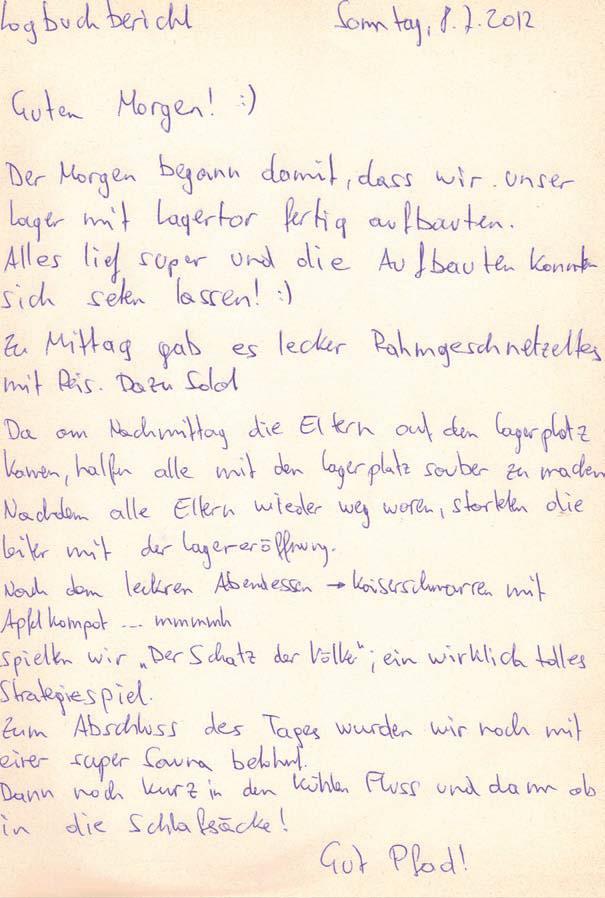 Logbuchbericht Sonntag, 8.7.2012
Guten Morgen! :)
Der Morgen begann damit, dass wir unser
Lager mit Lagertor fertig aufbauten.
Alles lief super und die Aufbauten konnten
sich sehen lassen! :)
Zu Mittag gab es lecker Rahmgeschnetzeltes
mit Reis. Dazu Salat
Da am Nachmittag die Eltern auf den Lagerplatz
kamen, halfen alle mit den Lagerplatz sauber zu machen
Nachdem alle Eltern wieder weg waren, starteten die
Leiter mit der Lagereröffnung.
Nach dem leckren Abendessen → Kaiserschmarren mit
Apfelkompot ... mmmmh
spielten wir „Der Schatz der Völker", ein wirklich tolles
Strategiespiel.
Zum Abschluss des Tages wurden wir noch mit
einer super Sauna belohnt.
Dann noch kurz in den kühlen Fluss und dann ab
in die Schlafsäcke!
Gut Pfad!